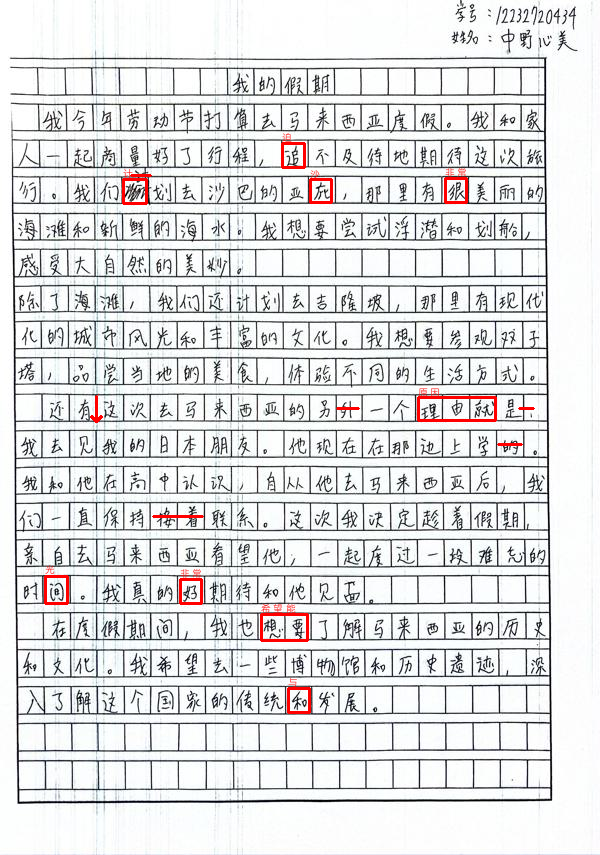 学号：12232720434
姓名：中野心美
我的假期
我今年劳动节打算去马来西亚度假。我和家
迫
人一起商量好了行程，追不及待地期待这次旅
计 沙 非常
行。我们划去沙巴的亚庇，那里有很美丽的
海滩和新鲜的海水。我想要尝试浮潜和划船，
感受大自然的美妙。
除了海滩，我们还计划去吉隆坡，那里有现代
化的城市风光和丰富的文化。我想要参观双子
塔，品尝当地的美食，体验不同的生活方式。
原因
还有这次去马来西亚的另外一个理由就是：
我去见我的日本朋友。他现在在那边上学的。
我和他在高中认识，自从他去马来西亚后，我
们一直保持接着联系。这次我决定趁着假期，
亲自去马来西亚看望他，一起度过一段难忘的
光 非常
时间。我真的好期待和他见面。
希望能
在度假期间，我也想要了解马来西亚的历史
和文化。我希望去一些博物馆和历史遗迹，深
与
入了解这个国家的传统和发展。